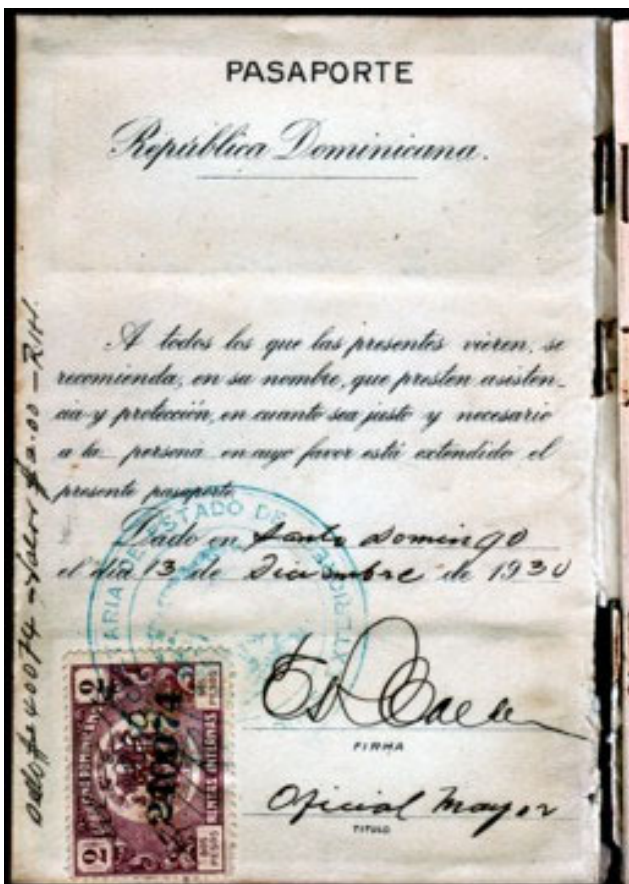 PASAPORTE
República Dominicana.
A todos los que las presentes vieren, se
recomienda, en su nombre, que presten asisten-
cia y protección, en cuanto sea justo y necesario
a la persona en cuyo favor está extendido el
presente pasaporte
Dado en Santo Domingo
el dia 13 de Diciembre de 1930
FIRMA
Oficial Mayor
TITULO
ARIA DE ESTADO DE
2
2
240074
RENTAS INTERNAS
DOS PESOS
DOS PESOS
Valor $2.00 - R.H.